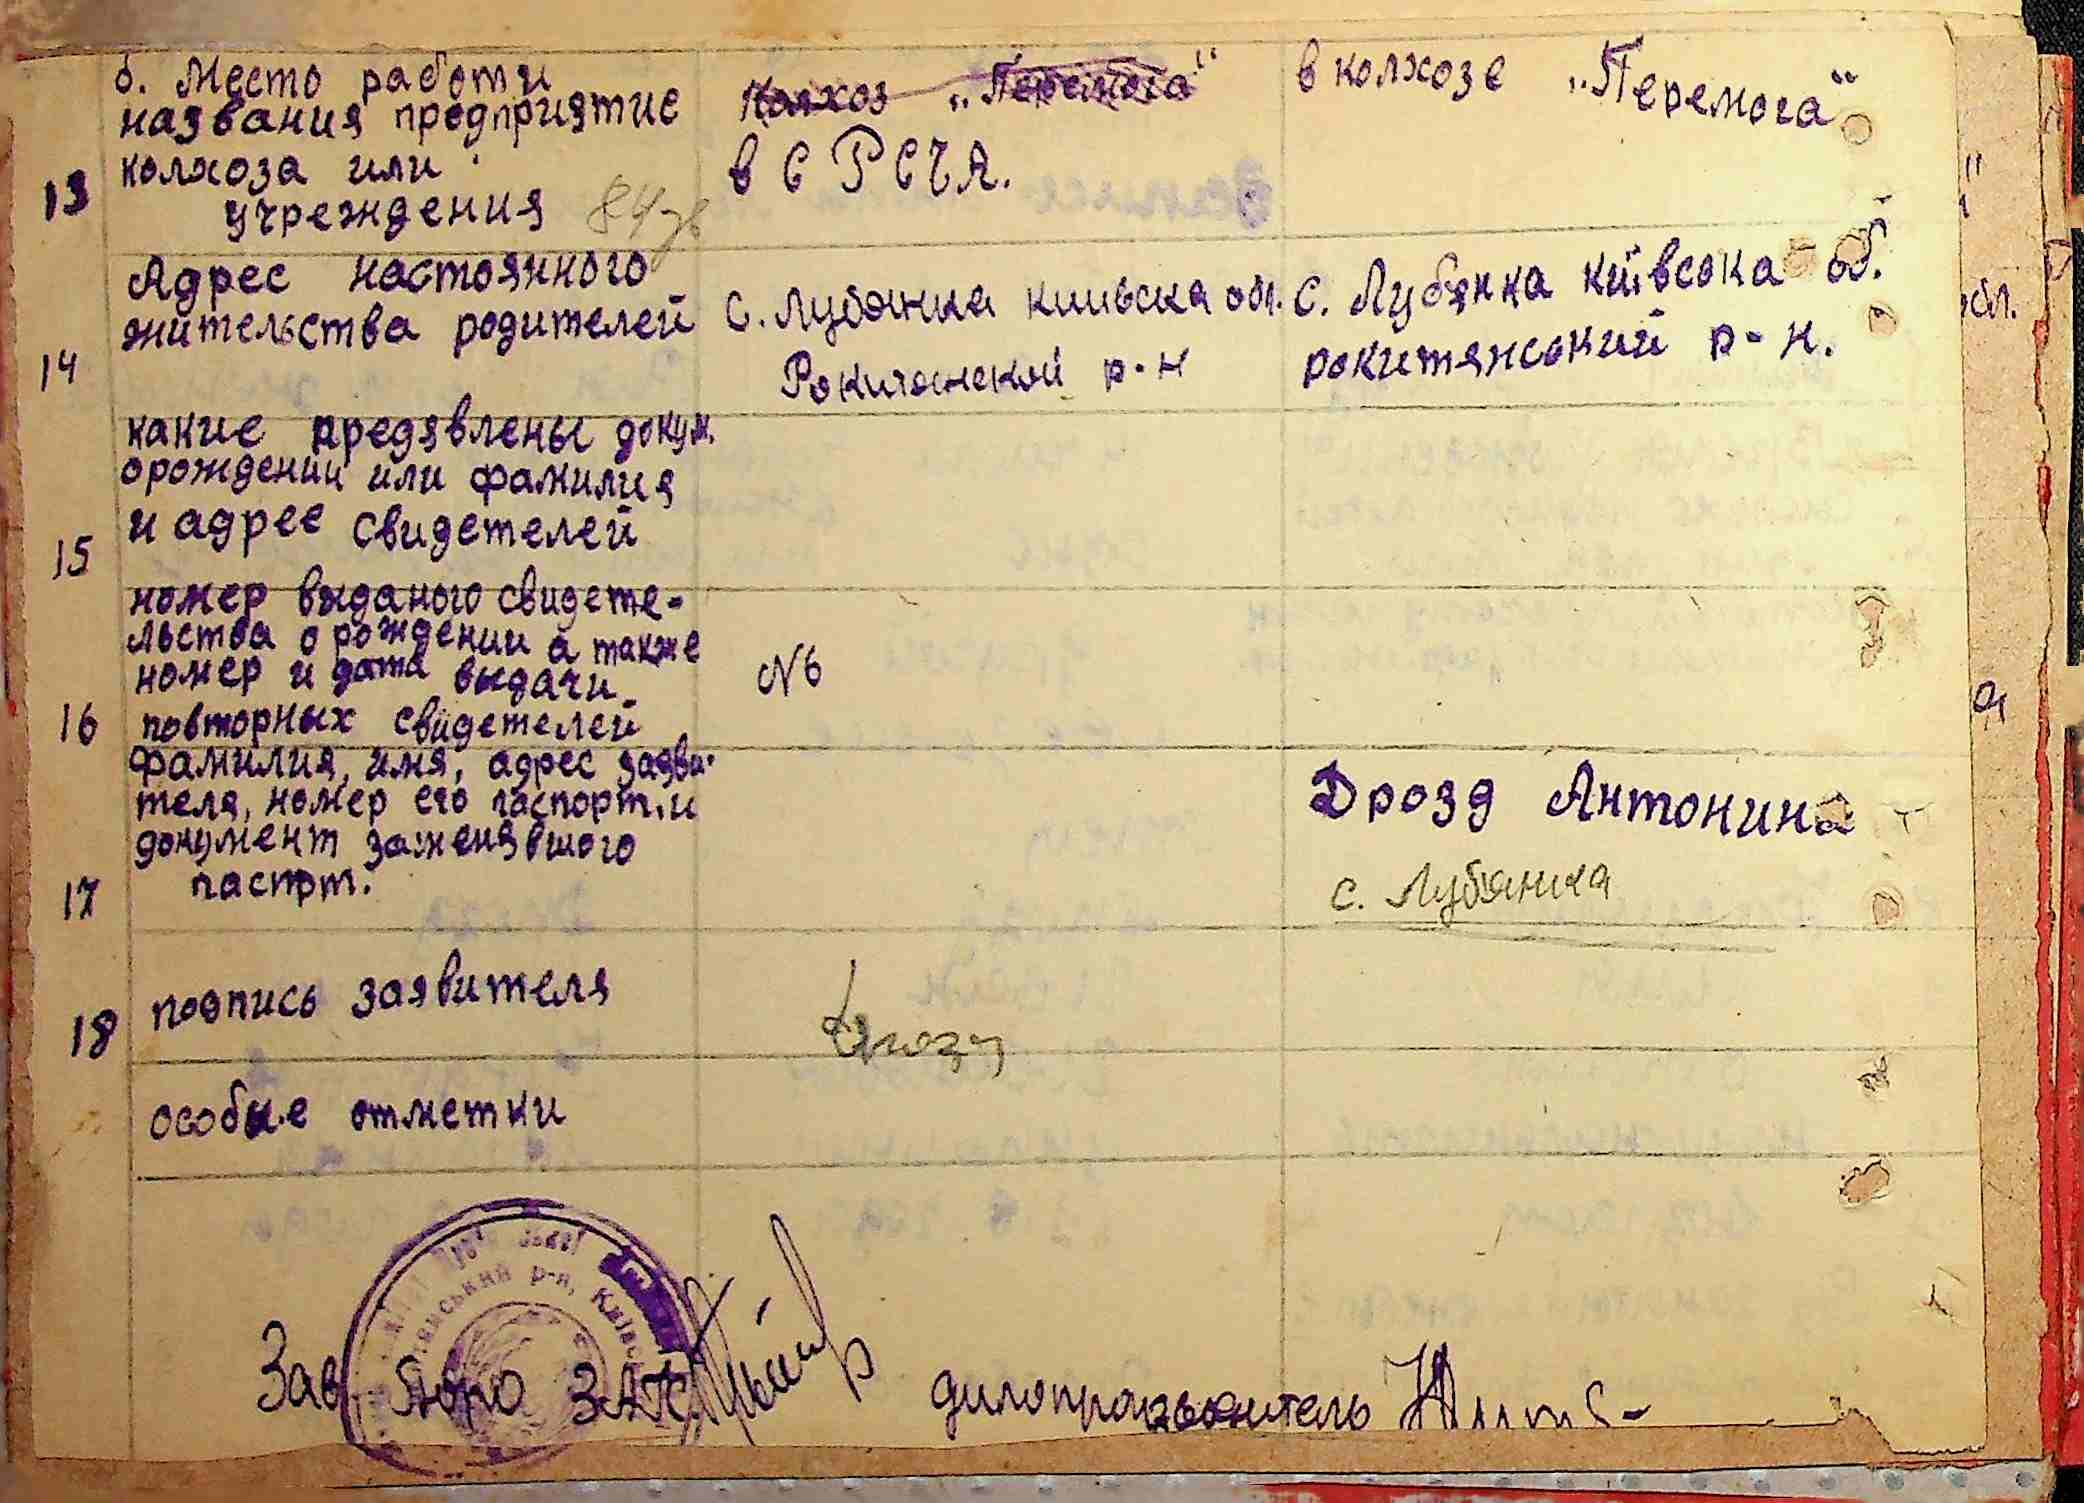 б. Место работи
названия предприятие
колхоза или
учреждения
13
84 зв
Колхоз „Перемога“
в С РСЧА.
в колхозе „Перемога“
Адрес настоянного
жительства родителей
14
с. Лубянка киивска обл.
Рокитянской р-н
с. Лубянка київсока об.
рокитянський р-н.
какие предявлены докум.
орождении или фамилия
и адрее свидетелей
15
номер выданого свидете-
льства о рождении а также
номер и дата выдачи
повторных свидетелей
16
№6
фамилия, имя, адрес заяви-
теля, номер его паспорт. и
документ заменявшого
паспрт.
17
Дрозд Антонина
с. Лубянка
подпись заявителя
18
Дрозд
особые отметки
р-н, Київсь
Зав Бюро ЗАГС
дилопроизводитель
обл.